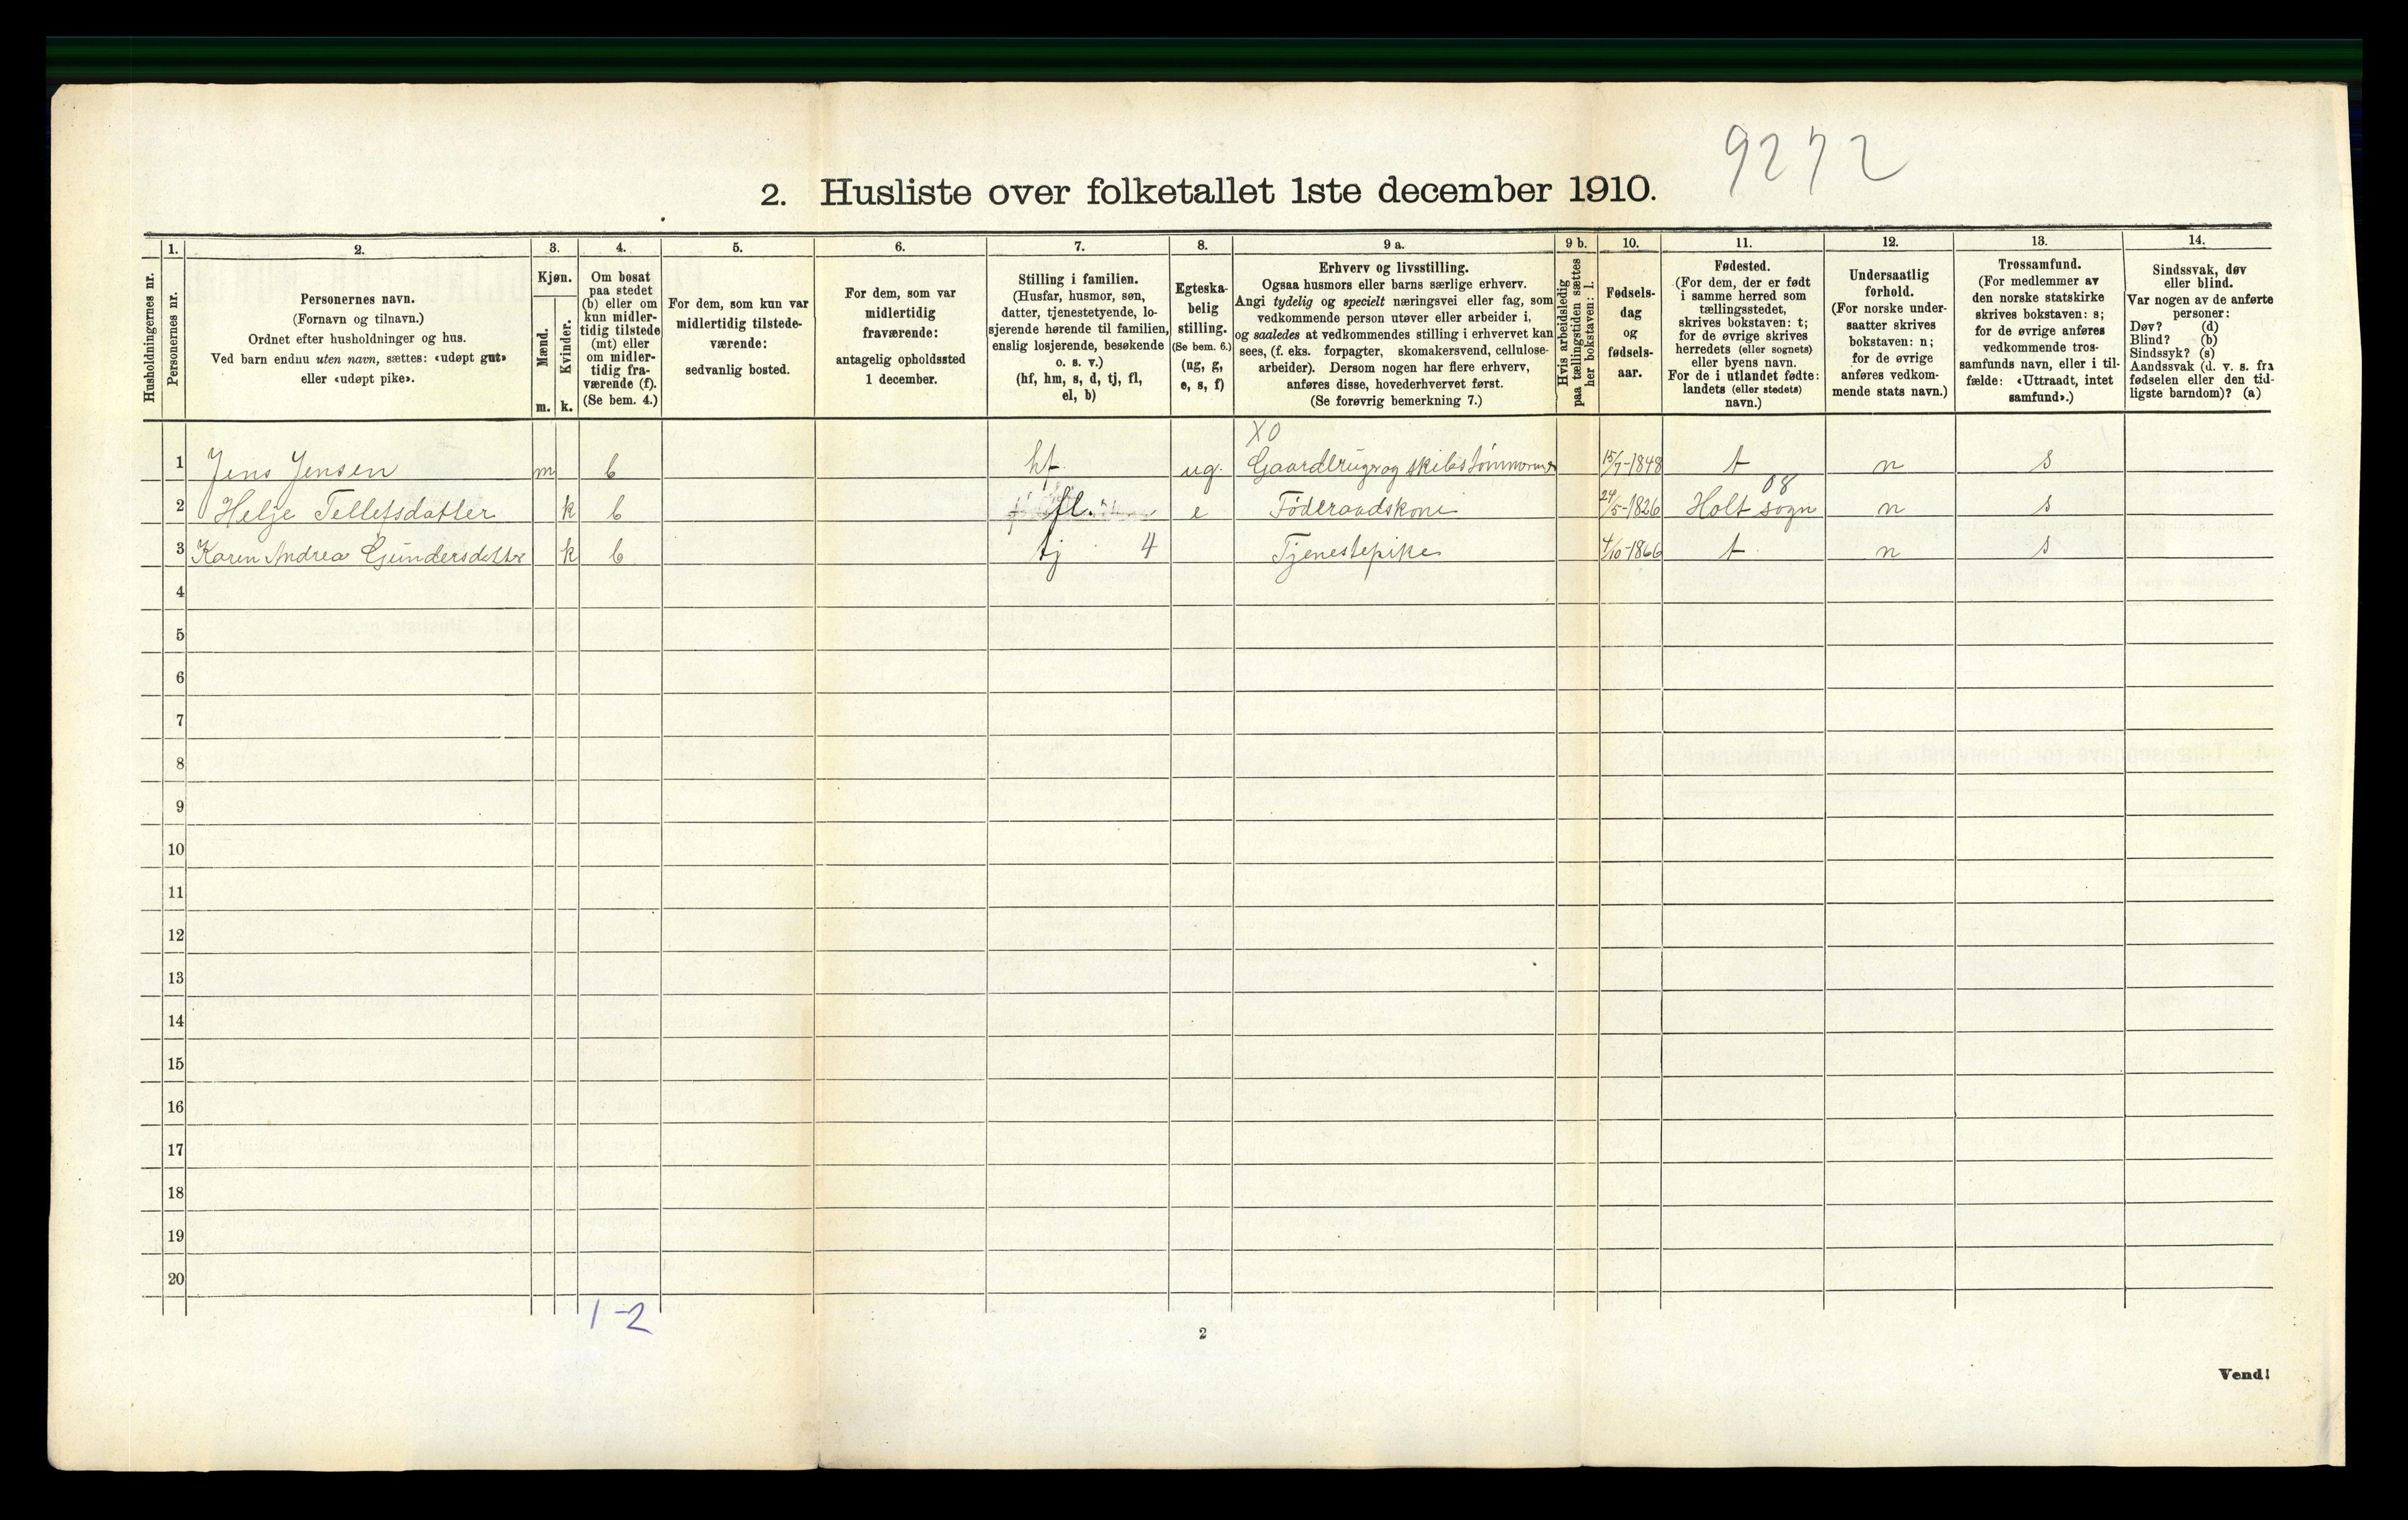 9272
2. Husliste over folketallet 1ste december 1910.
Husholdningernes nr.
1.
Personernes nr.
2.
Personernes navn.
(Fornavn og tilnavn.)
Ordnet efter husholdninger og hus.
Ved barn endnu uten navn, sættes: «udøpt gut»
eller «udøpt pike».
3.
Kjøn.
Mænd.
Kvinder.
m. k.
4.
Om bosat
paa stedet
(b) eller om
kun midler-
tidig tilstede
(mt) eller
om midler-
tidig fra-
værende (f).
(Se bem. 4.)
5.
For dem, som kun var
midlertidig tilstede-
værende:
sedvanlig bosted.
6.
For dem, som var
midlertidig
fraværende:
antagelig opholdssted
1 december.
7.
Stilling i familien.
(Husfar, husmor, søn,
datter, tjenestetyende, lo-
sjerende hørende til familien,
enslig losjerende, besøkende
o. s. v.)
(hf, hm, s, d, tj, fl,
el, b)
8.
Egteska-
belig
stilling.
(Se bem. 6.)
(ug, g,
e, s, f)
9 a.
Erhverv og livsstilling.
Ogsaa husmors eller barns særlige erhverv.
Angi tydelig og specielt næringsvei eller fag, som
vedkommende person utøver eller arbeider i,
og saaledes at vedkommendes stilling i erhvervet kan
sees, (f. eks. forpagter, skomakersvend, cellulose-
arbeider). Dersom nogen har flere erhverv,
anføres disse, hovederhvervet først.
(Se forøvrig bemerkning 7.)
9 b.
Hvis arbeidsledig
paa tællingstiden sættes
her bokstaven: l.
10.
Fødsels-
dag
og
fødsels-
aar.
11.
Fødested.
(For dem, der er født
i samme herred som
tællingsstedet,
skrives bokstaven: t;
for de øvrige skrives
herredets (eller sognets)
eller byens navn.
For de i utlandet fødte:
landets (eller stedets)
navn.)
12.
Undersaatlig
forhold.
(For norske under-
saatter skrives
bokstaven: n;
for de øvrige
anføres vedkom-
mende stats navn.)
13.
Trossamfund.
(For medlemmer av
den norske statskirke
skrives bokstaven: s;
for de øvrige anføres
vedkommende tros-
samfunds navn, eller i til-
fælde: «Uttraadt, intet
samfund».)
14.
Sindssvak, døv
eller blind.
Var nogen av de anførte
personer:
Døv? (d)
Blind? (b)
Sindssyk? (s)
Aandssvak (d. v. s. fra
fødselen eller den tid-
ligste barndom)? (a)
XO
1 Jens Jensen m b hf ug. Gaardbruger og skibstømmerm 15/7-1848 t n s
08
2 Helje Tellefsdatter k b fl. e Føderaadskone 24/5-1826 Holt sogn n s
3 Karen Andrea Gundersdatter k b tj 4 Tjenestepike 4/10-1866 t n s
4
5
6
7
8
9
10
11
12
13
14
15
16
17
18
19
20
1-2
2
Vend!